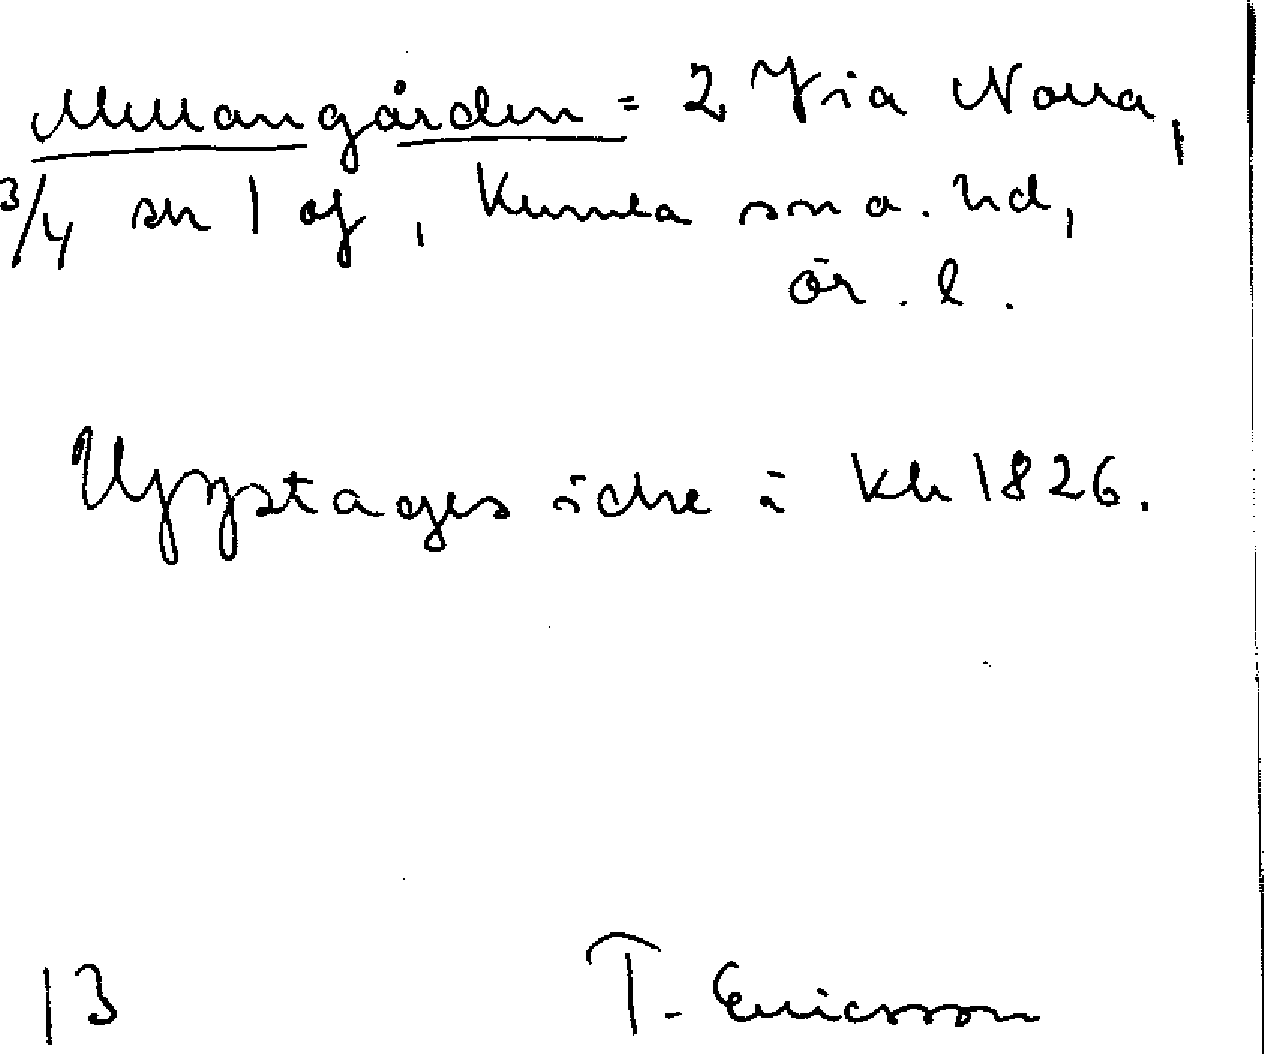 Mellangården = 2 Via Norra,
3/4 sk 1 of, Kumla sn o. hd,
ör. l.
Upptages icke i kb 1826.
13 T. Ericsson